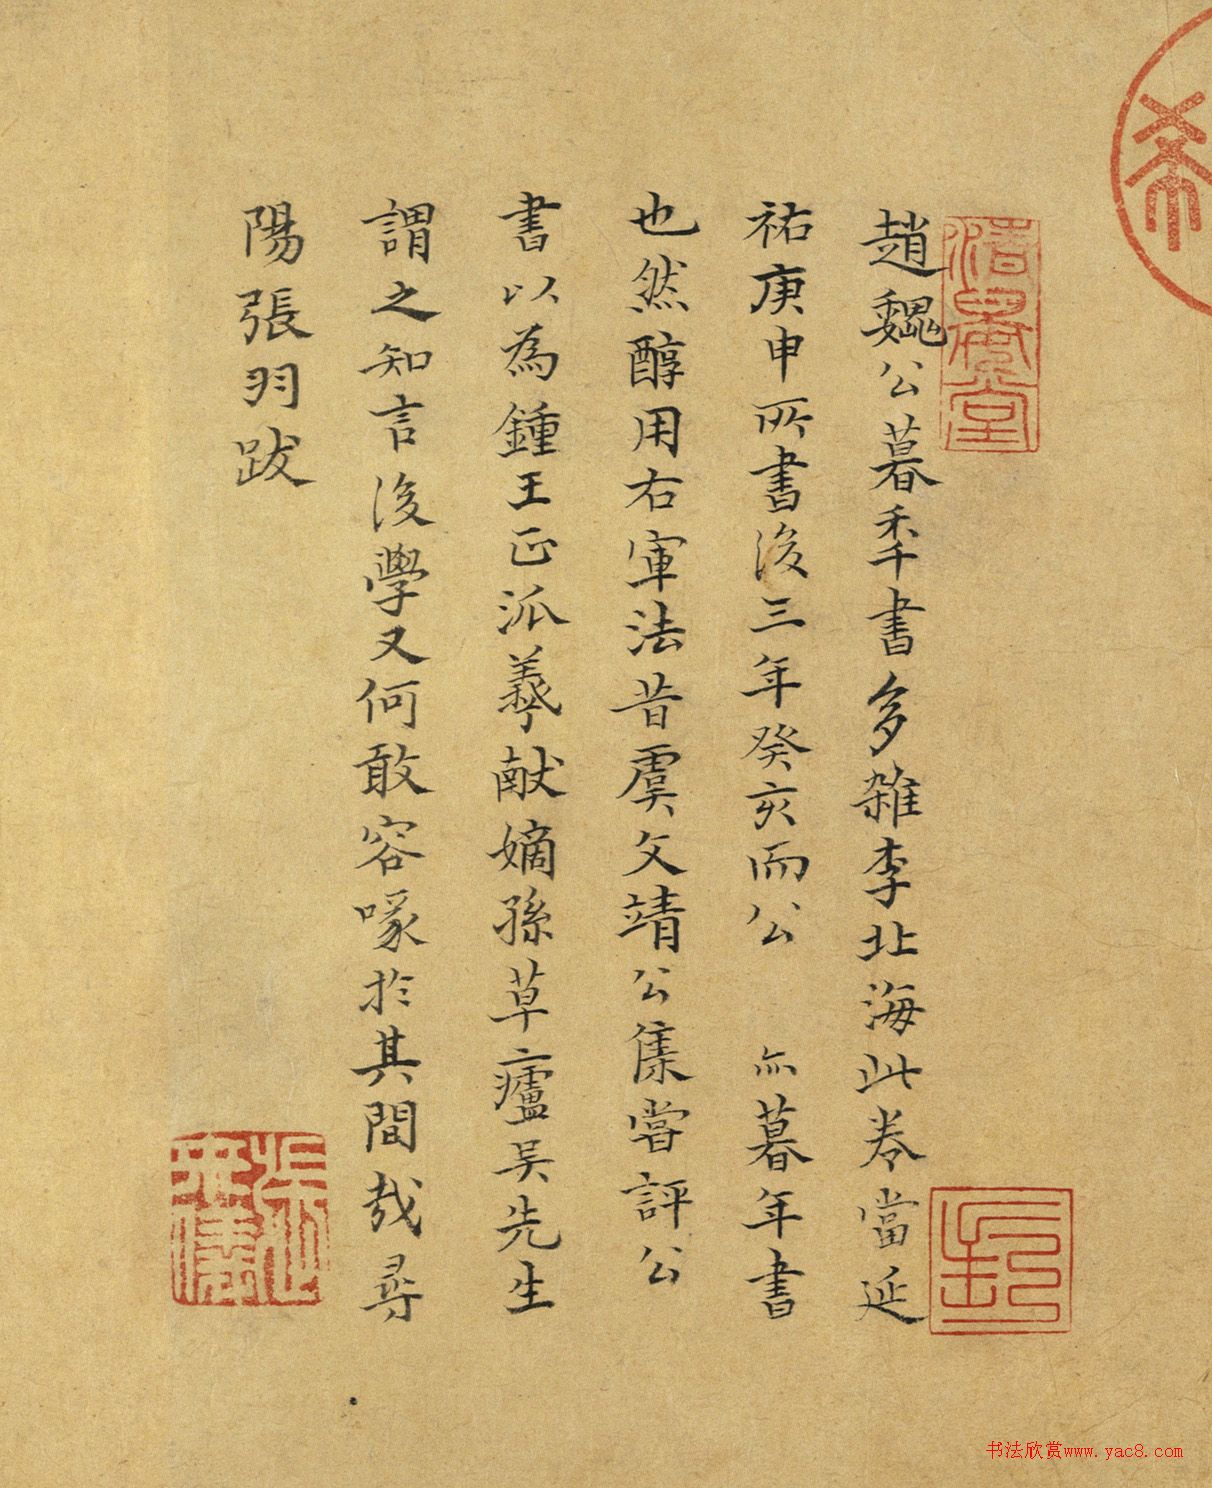 趙魏公暮年書多雜李北海此卷當延
祐庚申所書後三年癸亥而公 亦暮年書
也然醇用右軍法昔虞文靖公集嘗評公
書以為鍾王正派羲献嫡孫草廬吳先生
謂之知言後學又何敢容喙於其間哉尋
陽張羽跋
希
书法欣赏www.yac8.com